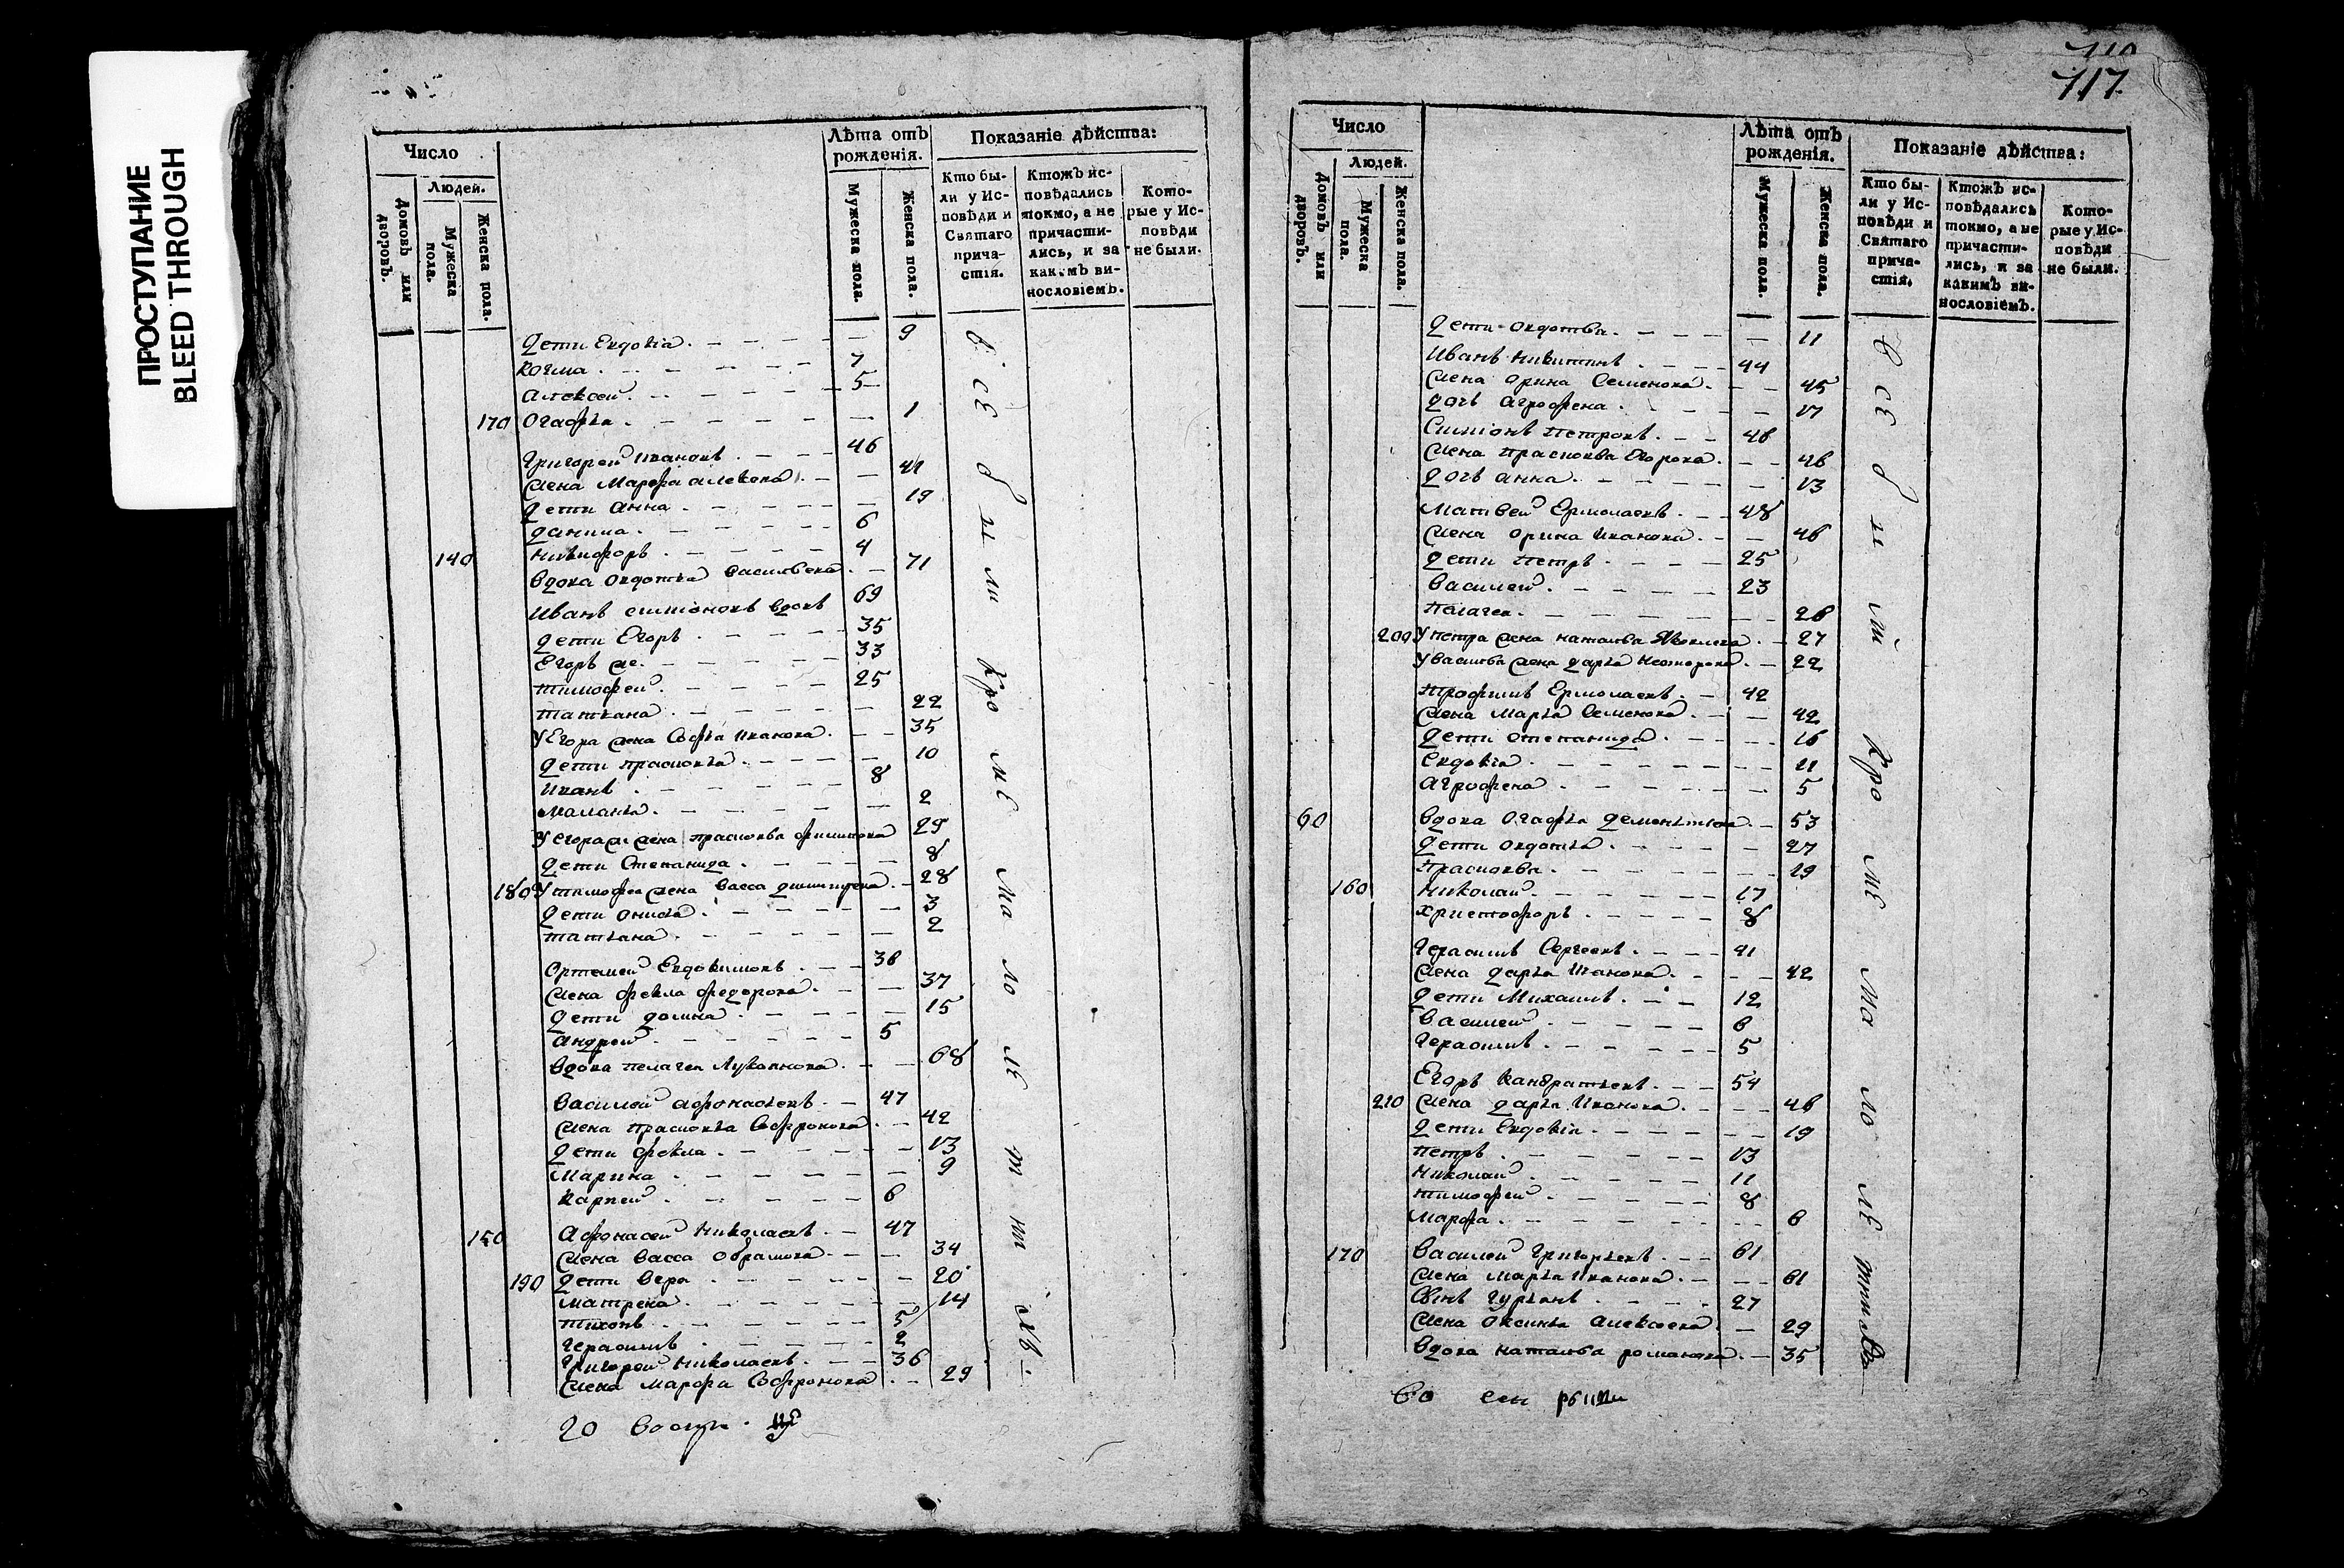 ПРОСТУПАНИЕ
BLEED THROUGH
Число
Людей.
Домовъ или дворовъ.
Мужеска пола.
Женска пола.
Лѣта отъ рожденія.
Мужеска пола.
Женска пола.
Показаніе дѣйства:
Кто бы-
ли у Ис-
повѣди и
Святаго
прича-
стія.
Ктожъ ис-
повѣдались
токмо, а не
причасти-
лись, и за
какимъ ви-
нословіемъ.
Кото-
рые у Ис-
повѣди
не были.
дети Евдокіа 9
козма 7
алексеи 5
170 огафья 1
григореи ивановъ 46
жена марфа алексева 41
дети анна 19
данила 6
140 никифоръ 4
вдова овдотья васильева 71
иванъ симіоновъ вдовъ 69
дети Егоръ 35
Егоръ же 33
тимофеи 25
татьяна 22
у Егора жена софья иванова 35
дети прасковья 10
иванъ 8
маланья 2
у Егора ж жена прасковья филипова 29
дети степанида 8
180 у тимофея жена васса дмитриева 28
дети онисья 3
татьяна 2
ортемеи Евдокимовъ 38
жена фекла федорова 37
дети домна 15
андреи 5
вдова пелагея лукоянова 68
василеи афонасьевъ 47
жена прасковья софронова 42
дети фекла 13
марина 9
карпеи 6
150 афонасеи николаевъ 47
жена васса обрамова 34
190 дети вера 20
матрена 14
тихонъ 5
герасимъ 2
григореи николаевъ 36
жена марфа софронова 29
все были кроме малолетнихъ
20
717
Число
Людей.
Домовъ или дворовъ.
Мужеска пола.
Женска пола.
Лѣта отъ рожденія.
Мужеска пола.
Женска пола.
Показаніе дѣйства:
Кто бы-
ли у Ис-
повѣди и
Святаго
прича-
стія.
Ктожъ ис-
повѣдались
токмо, а не
причасти-
лись, и за
какимъ ви-
нословіемъ.
Кото-
рые у Ис-
повѣди
не были.
дети овдотья 11
иванъ никитинъ 44
жена орина семенова 45
дочь агрофена 17
симіонъ петровъ 48
жена прасковья Егорова 46
дочь анна 13
матвеи Ермолаевъ 48
жена орина иванова 46
дети петръ 25
василеи 23
пелагея 28
200 у петра жена наталья яковлева 27
у василья жена дарья несторова 22
трофимъ Ермолаевъ 42
жена марья семенова 42
дети степанида 16
евдокья 11
агрофена 5
60 вдова огафья дементьева 53
дети овдотья 27
прасковья 19
160 николаи 17
христофоръ 8
герасимъ сергеевъ 41
жена дарья иванова 42
дети михаилъ 12
василеи 6
герасимъ 5
Егоръ кандратьевъ 54
210 жена дарья иванова 46
дети евдокіа 19
петръ 13
николаи 11
тимофеи 8
марфа 6
170 василеи григорьевъ 61
жена марья иванова 61
сынъ гурьянъ 27
жена оксинья алексеева 29
вдова наталья романова 35
все были кроме малолетнихъ
60